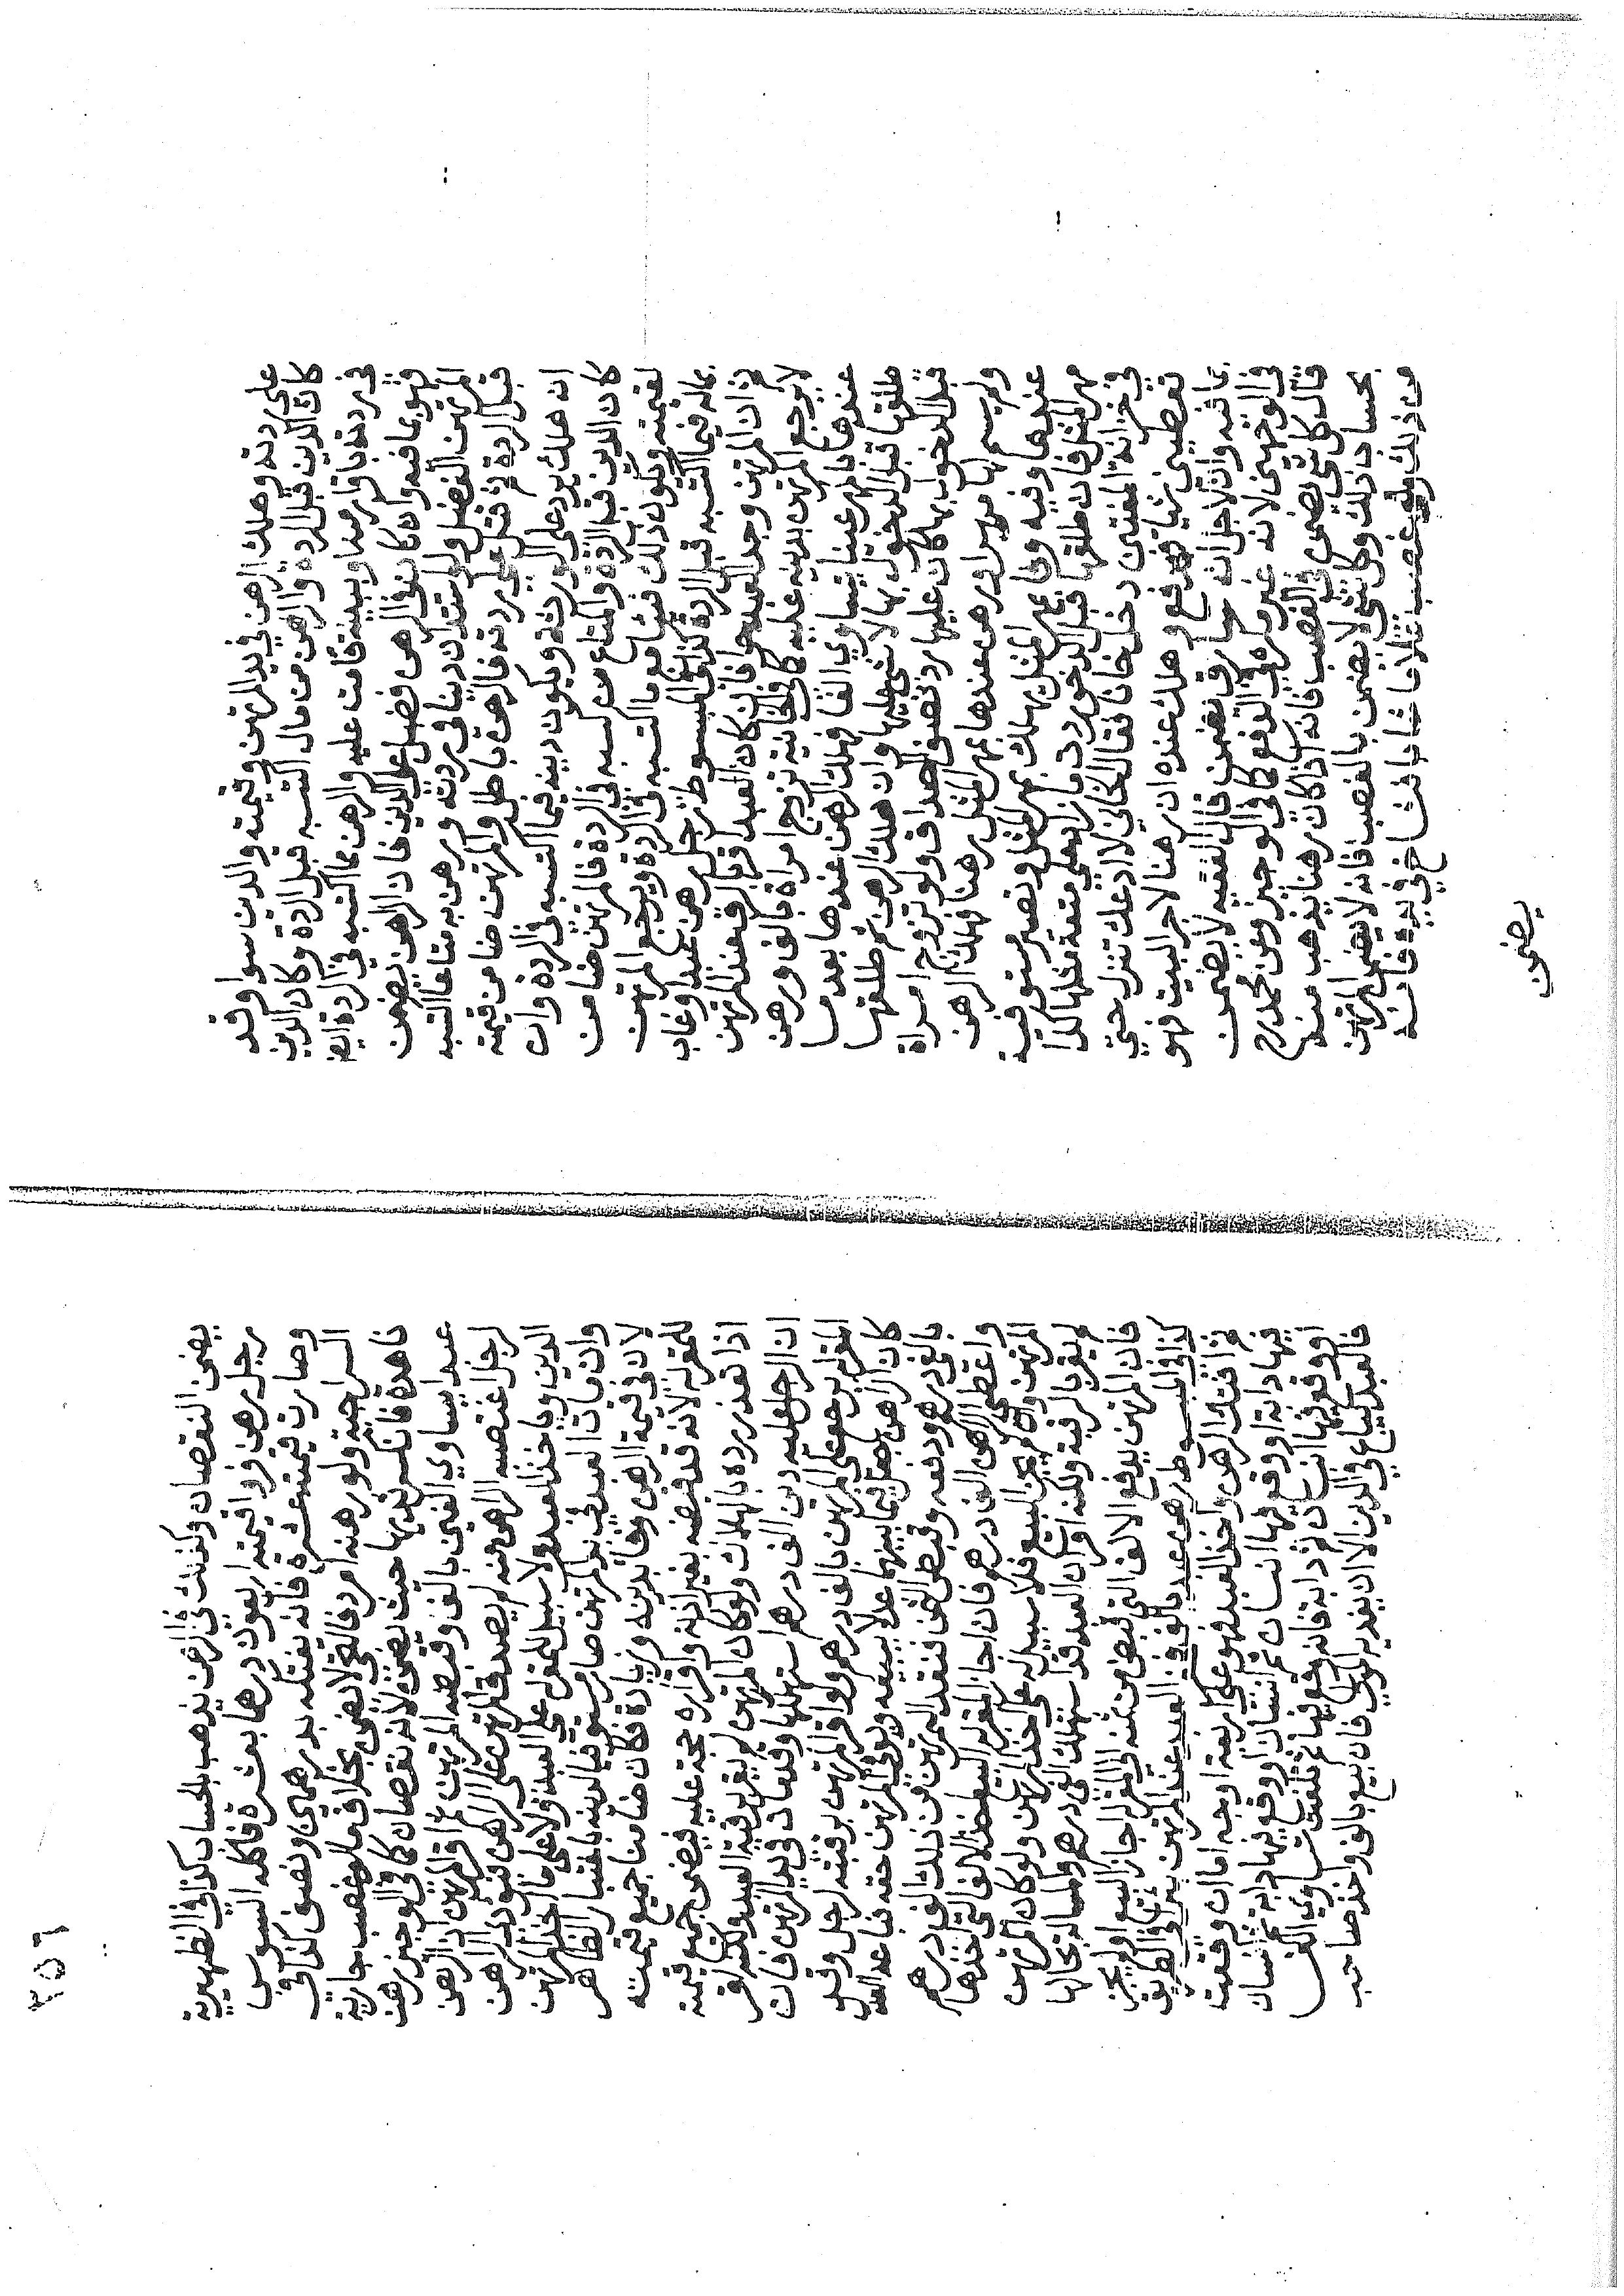 على ردته وهلك الرهن في يد المرتهن وقيمته والدين سوا وقد
كان الدين قبل الردة والرهن من مال اكتسبه قبل الردة وكان الدين
في ردته باقرار منه او ببينة قامت عليه والرهن مما اكتسبه في الردة ايضا
فهو بما فيه وان كان في الرهن فضل على الدين فان الرهن يضمن
المرتهن الفضل ولو استدان دينا في ردته ورهن به متاعا اكتسبه
قبل الردة ثم قتل على ردته فالرهن باطل والمرتهن ضامن قيمته
ان هلك يرد على الورثة ويكون دينه فيما اكتسبه في الردة وان
كان الدين قبل الردة والمتاع من كسبه في الردة فالمرتهن ضامن
لقيمته ويكون ذلك فيئا مع ما اكتسبه في الردة ويرجع المرتهن
بماله فيما اكتسبه قبل الردة كذا في المبسوط رجل رهن عبدا وغاب
ثم ان المرتهن وجد العبد حرا فان كان العبد اقر بالرق عند المرتهن
لا يرجع المرتهن بدينه عليه كما في الخانية تزوج امراة بالف ورهن
عندها بالمهر عينا يساوي الفا فهلك الرهن عندها بعد ما
طلقها قبل الدخول بها لا شي عليها وان هلك الرهن ثم طلقها
قبل الدخول بها كان عليها رد نصف الصداق ولو تزوج امراة
ولم يسم لها مهرا ورهن عندها بمهر المثل رهنا فهلك الرهن
عندها وفيه وفا بمهر المثل يهلك بمهر المثل وتصير مستوفية
مهر المثل فان طلقها قبل الدخول ردت ما زاد على متعة مثلها كذا
في خزانة المفتين دخل خانا فقال الخاني لا ادعك تنزل حتى
تعطيني شيا فدفع وهلك عنده ان رهنا لاجر البيت فهو
بما فيه وان لاجل انه سارق ضمن قال الفقيه لا يضمن
في الوجهين لانه غير مكره في الدفع كما في الوجيز وعن محمد رح
قال كل شي يضمن في الغصب فانه اذا كان رهنا يذهب منه
بحساب ذلك وكل شي لا يضمن بالغصب فانه لا يضمن المرتهن
من ذلك غصب شابا فشاخ في يده فانه
يضمن
٣٥٦
يضمن النقصان وكذلك في الرهن يذهب بالحساب كذا في الظهيرية
رجل رهن فروا قيمته اربعون درهما بعشرة فاكله السوس
وصارت قيمته عشرة فانه يفتكه بدرهمين ونصف كذا في
السراجية ولو رهنه امرد فالتحى لا يضمن بخلاف ما لو غصب جارية
ناهدة فانكسر ثديها حيث يضمن لانه نقصان كما في الوجيز رهن
عبدا يساوي الفين بالف وقبضه المرتهن ثم اقر المرتهن ان الرهن
لرجل اغتصبه الراهن منه لم يصدق المرتهن على الراهن فيودي الراهن
الدين وياخذ العبد ولا سبيل للمقر له على العبد ولا على ما اخذ المرتهن
وان مات العبد في يد المرتهن صار مستوفيا لدينه باعتبار الظاهر
لان في قيمة الرهن وفا بدينه وزيادة فكان ضامنا جميع قيمته
للمقر له لانه قد قبضه بغير اذنه واقراره حجة عليه فيضمن جميع قيمته
اذا تعذر رده بالهلاك ولو كان المرتهن لم يقر برقبة العبد ولكنه اقر
ان لرجل عليه دين الف درهم استهلكها وقد مات في يد المرتهن فان
المقر له يرجع على المرتهن بالف درهم ولو اقر المرتهن برقبته لرجل وقد
كان الراهن جعل فيما بينهما عدلا يبيعه ويوفي المرتهن حقه فباعه العدل
بالفي درهم ودفعه وقبض الثمن فنقد المرتهن من ذلك الف درهم
واعطى الراهن الف درهم فان اجاز المقر له البيع اخذ الالف التي اخذها
المرتهن وان لم يجز البيع فلا سبيل له على اخذ المرتهن ولو كان المرتهن
لم يقر بالرقبة ولكنه اقر ان العبد قد استهلك الف درهم والمسالة بحالها
فان المرتهن يدفع الالف التي قبض من ثمنه الى المقر له اجاز البيع او لم يجز
كذا في المبسوط رهن عبدا بالف فحفر العبد عند المرتهن بئرا في الطريق
ثم افتك الرهن واخذ العبد فهو على اربعة اوجه اما ان وقعت
فيها دابة او وقع فيها انسان ثم انسان او وقع فيها دابة ثم انسان
او وقع فيها انسان ثم دابة فان وقع فيها ثم تلفت تساوي الفا
فالعبد يباع في الدين الا ان يفديه المولى فان بيع بالف واخذ صاحب